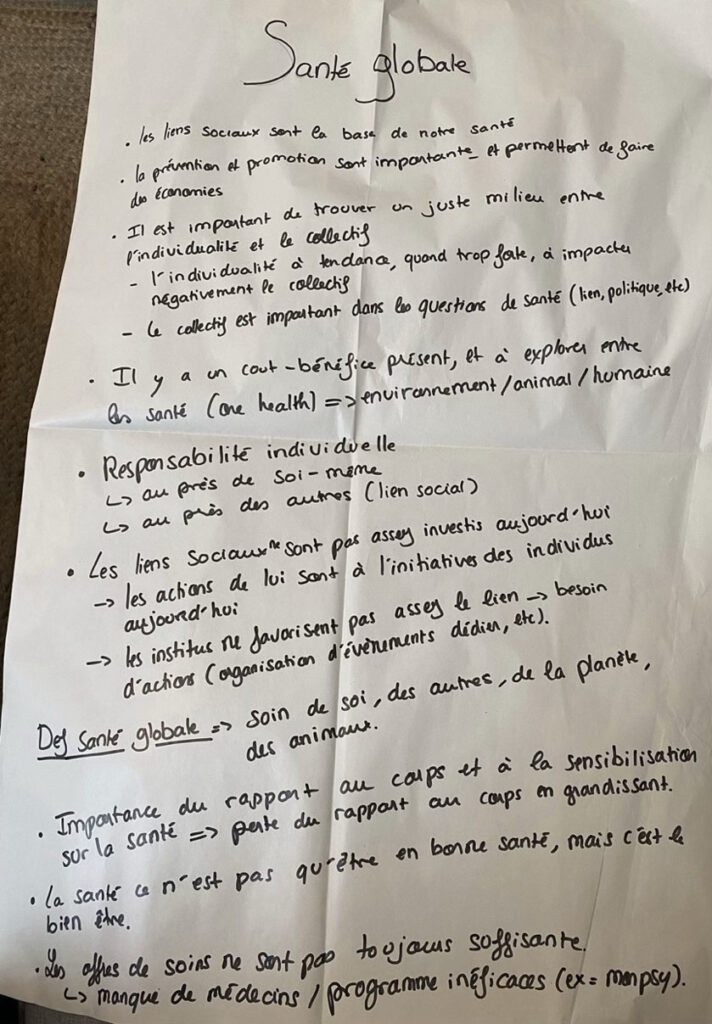 Santé globale
. les liens sociaux sont la base de notre santé
. la prévention et promotion sont importante et permettent de faire
des économies
. Il est important de trouver un juste milieu entre
l'individualité et le collectif
- l'individualité à tendance, quand trop forte, à impacter
négativement le collectif
- Le collectif est important dans les questions de santé (lien, politique, etc)
. Il y a un cout-bénéfice présent, et à explorer entre
les santé (one health) => environnement/animal/humaine
. Responsabilité individuelle
↳ au près de soi-même
↳ au près des autres (lien social)
. Les liens sociaux ne sont pas assez investis aujourd'hui
→ les actions de lui sont à l'initiatives des individus
aujourd'hui
→ les institus ne favorisent pas assez le lien → besoin
d'actions (organisation d'évènements dédier, etc).
Def santé globale => soin de soi, des autres, de la planète,
des animaux.
. Importance du rapport au corps et à la sensibilisation
sur la santé => perte du rapport au corps en grandissant.
. la santé ce n'est pas qu'être en bonne santé, mais c'est le
bien être.
. Les offres de soins ne sont pas toujours suffisante.
↳ manque de médecins / programme inéficaces (ex = monpsy).